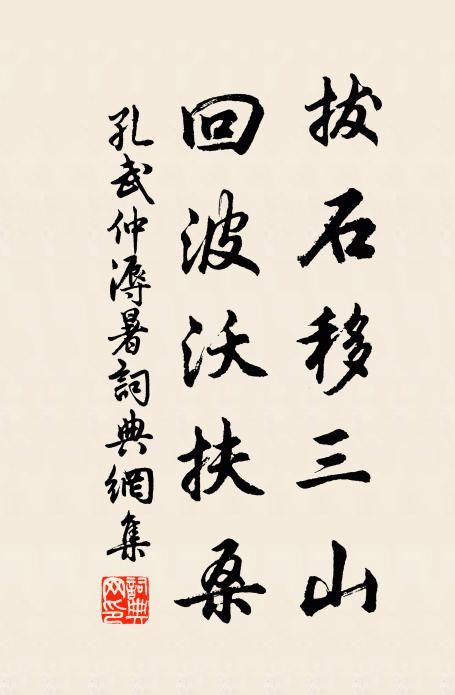 拔石移三山
回波沃扶桑
孔武仲溽暑詞典網集
詞典網印